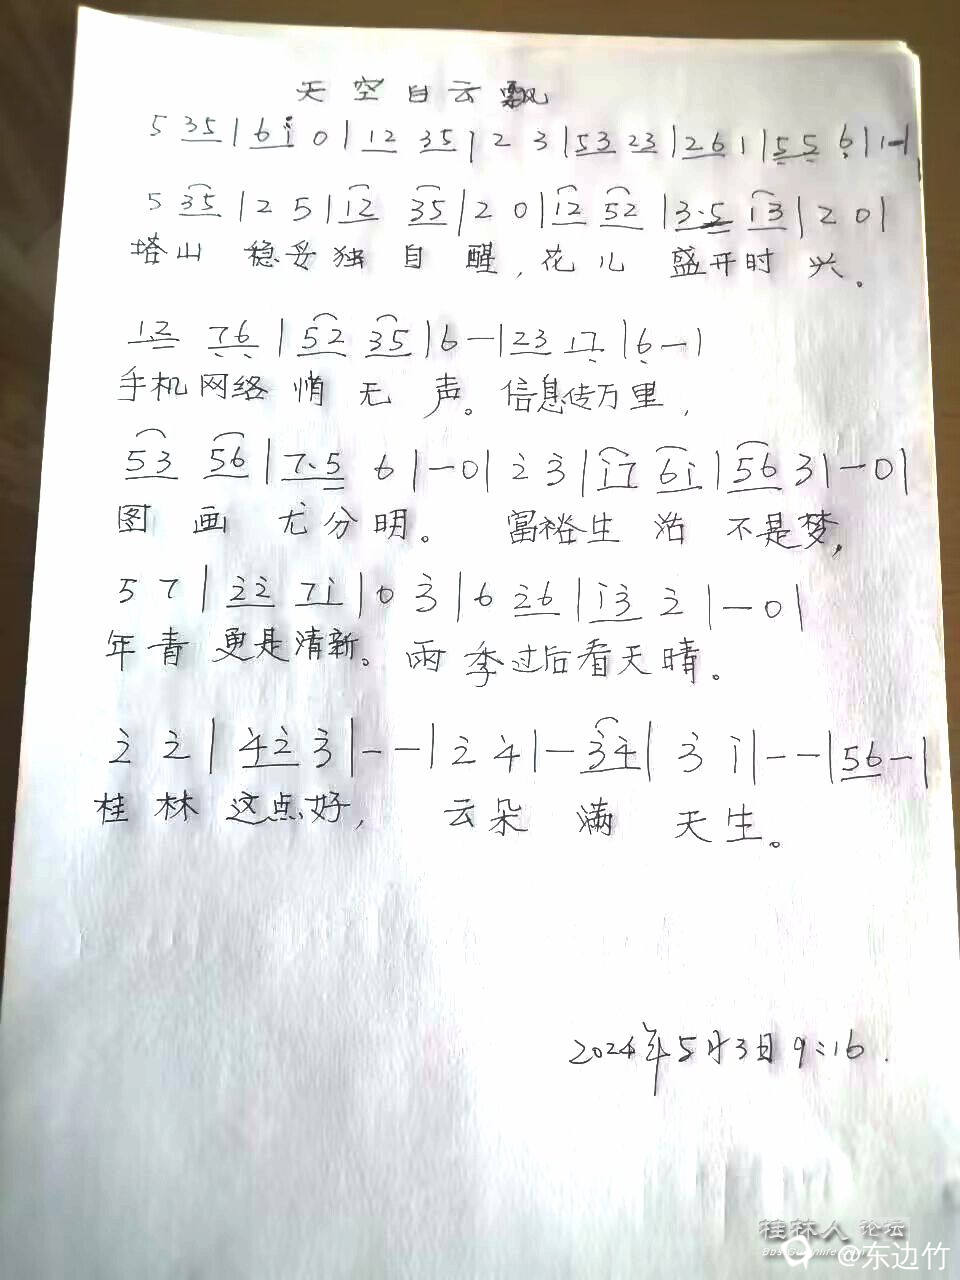 天空白云飘
5 35 | 6 i 0 | 12 35 | 2 3 | 53 23 | 26 1 | 55 6 | 1 - |
5 35 | 2 5 | 12 35 | 2 0 | 12 52 | 3·5 i3 | 2 0 |
塔山 稳妥独自醒,花儿 盛开时兴。
1·2 76 | 52 35 | 6 - | 23 17 | 6 - |
手机网络 悄无声。信息传万里,
53 56 | 7·5 6 | - 0 | 2̇ 3̇ | i7 6i | 56 3 | - 0 |
图画 尤分明。 富裕生活 不是梦,
5 7 | 2̇2̇ 7i | 0 3̇ | 6 2̇6 | i3̇ 2̇ | - 0 |
年青 更是清新。雨季过后看天晴。
2̇ 2̇ | 4̇2̇ 3̇ | - - | 2̇ 4̇ | - 3̇4̇ | 3̇ i | - - | 56 - |
桂林 这点好, 云朵满 天生。
2024年5月3日9:16.
桂林人 论坛
@东边竹